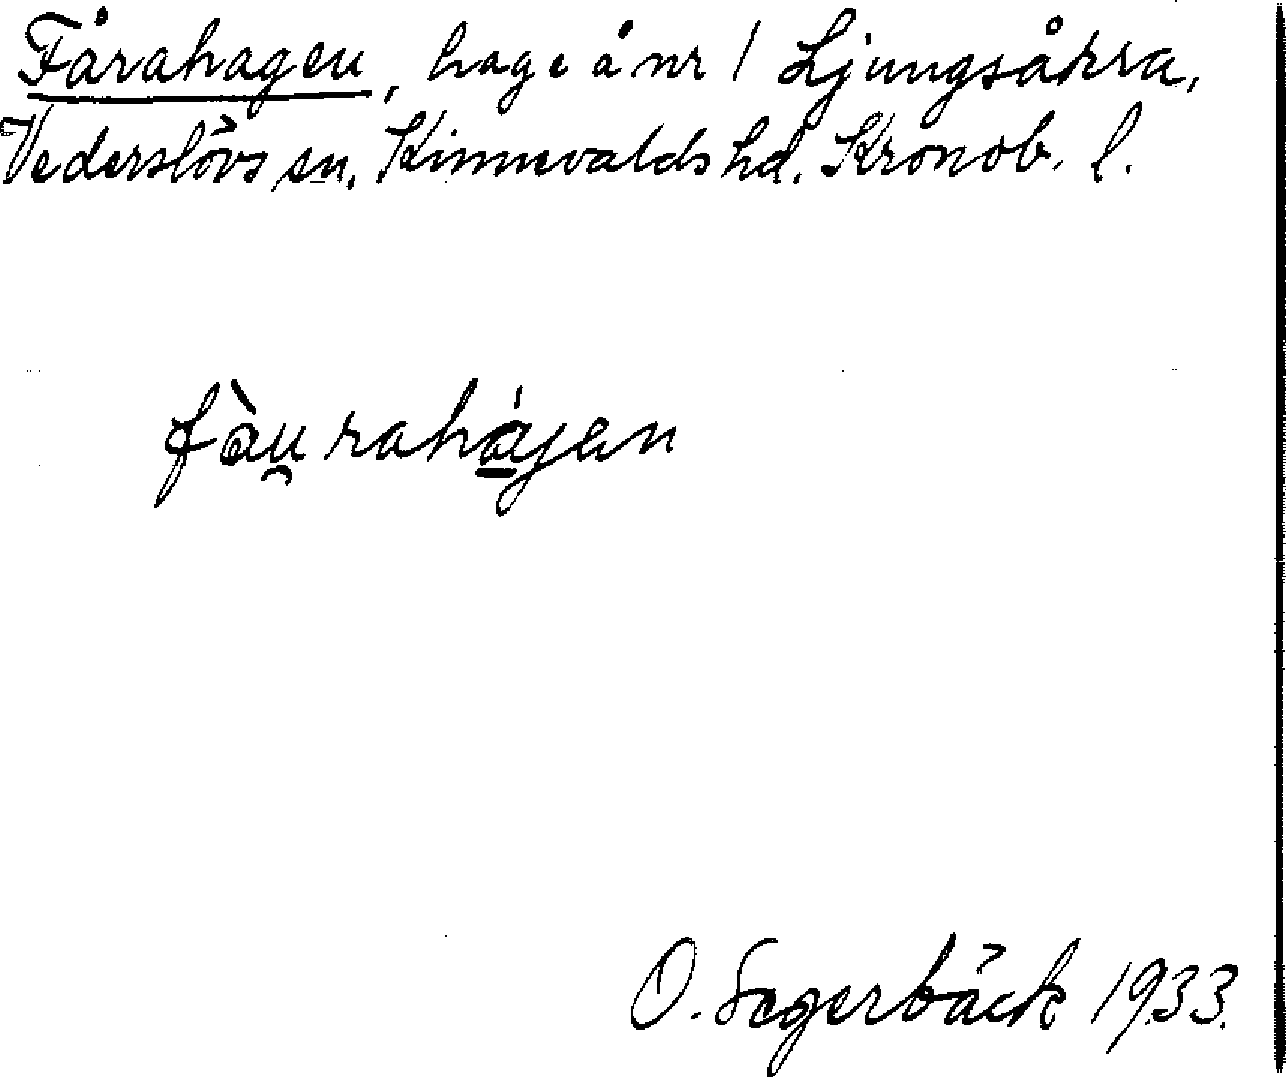 Fårahagen, hage å nr 1 Ljungsåkra,
Vederslövs sn, Kinnevalds hd. Kronob. l.
fàu̯rahájen
O. Segerbäck 1933.